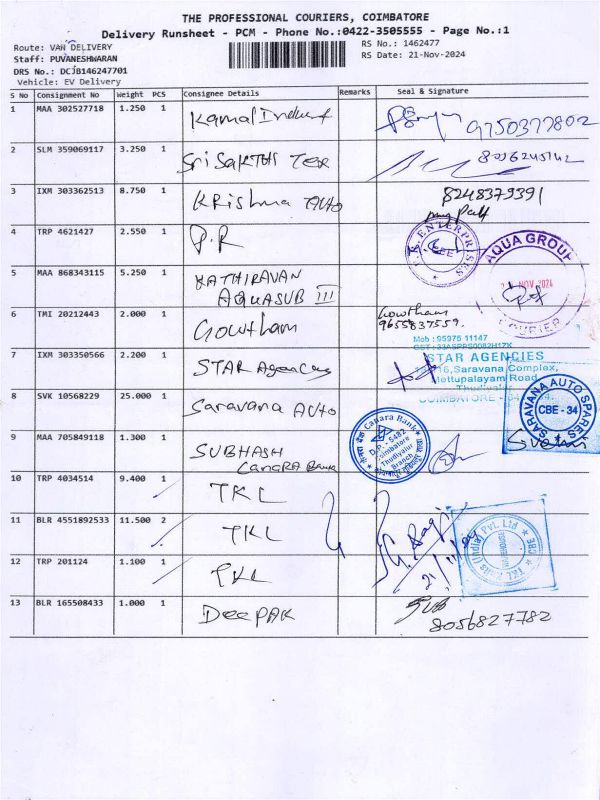 THE PROFESSIONAL COURIERS, COIMBATORE
Delivery Runsheet - PCM - Phone No.:0422-3505555 - Page No.:1
Route: VAN DELIVERY
Staff: PUVANESHWARAN
DRS No.: DCJB146247701
Vehicle: EV Delivery
RS No.: 1462477
RS Date: 21-Nov-2024
S No Consignment No Weight PCS Consignee Details Remarks Seal & Signature
1 MAA 302527718 1.250 1 Kamal 9750377802
2 SLM 359069117 3.250 1 Sri SAKTHI Tex
3 IXM 303362513 8.750 1 Krishna Auto 8248379391
4 TRP 4621427 2.550 1 P.R
ENTERPRISES
CBE
5 MAA 868343115 5.250 1 KATHIRAVAN
AQUASUB III
AQUA GROUP
NOV 2024
COURIER
6 TMI 20212443 2.000 1 Gowtham Gowtham
9655837559
7 IXM 303350566 2.200 1 STAR Agencies
Mob : 95976 11147
STAR AGENCIES
Saravana Complex,
Mettupalayam Road
COIMBATORE
8 SVK 10568229 25.000 1 Saravana Auto
SARAVANA AUTO SPARES
CBE - 34
9 MAA 705849118 1.300 1 SUBHASH
CANARA Bank
Canara Bank
D.P.: 5482
Coimbatore
Thudiyalur
Branch
10 TRP 4034514 9.400 1 TKL
11 BLR 4551892533 11.500 2 TKL
12 TRP 201124 1.100 1 PKL
(India) Pvt. Ltd
CBE
13 BLR 165508433 1.000 1 DeePAK
8056827782